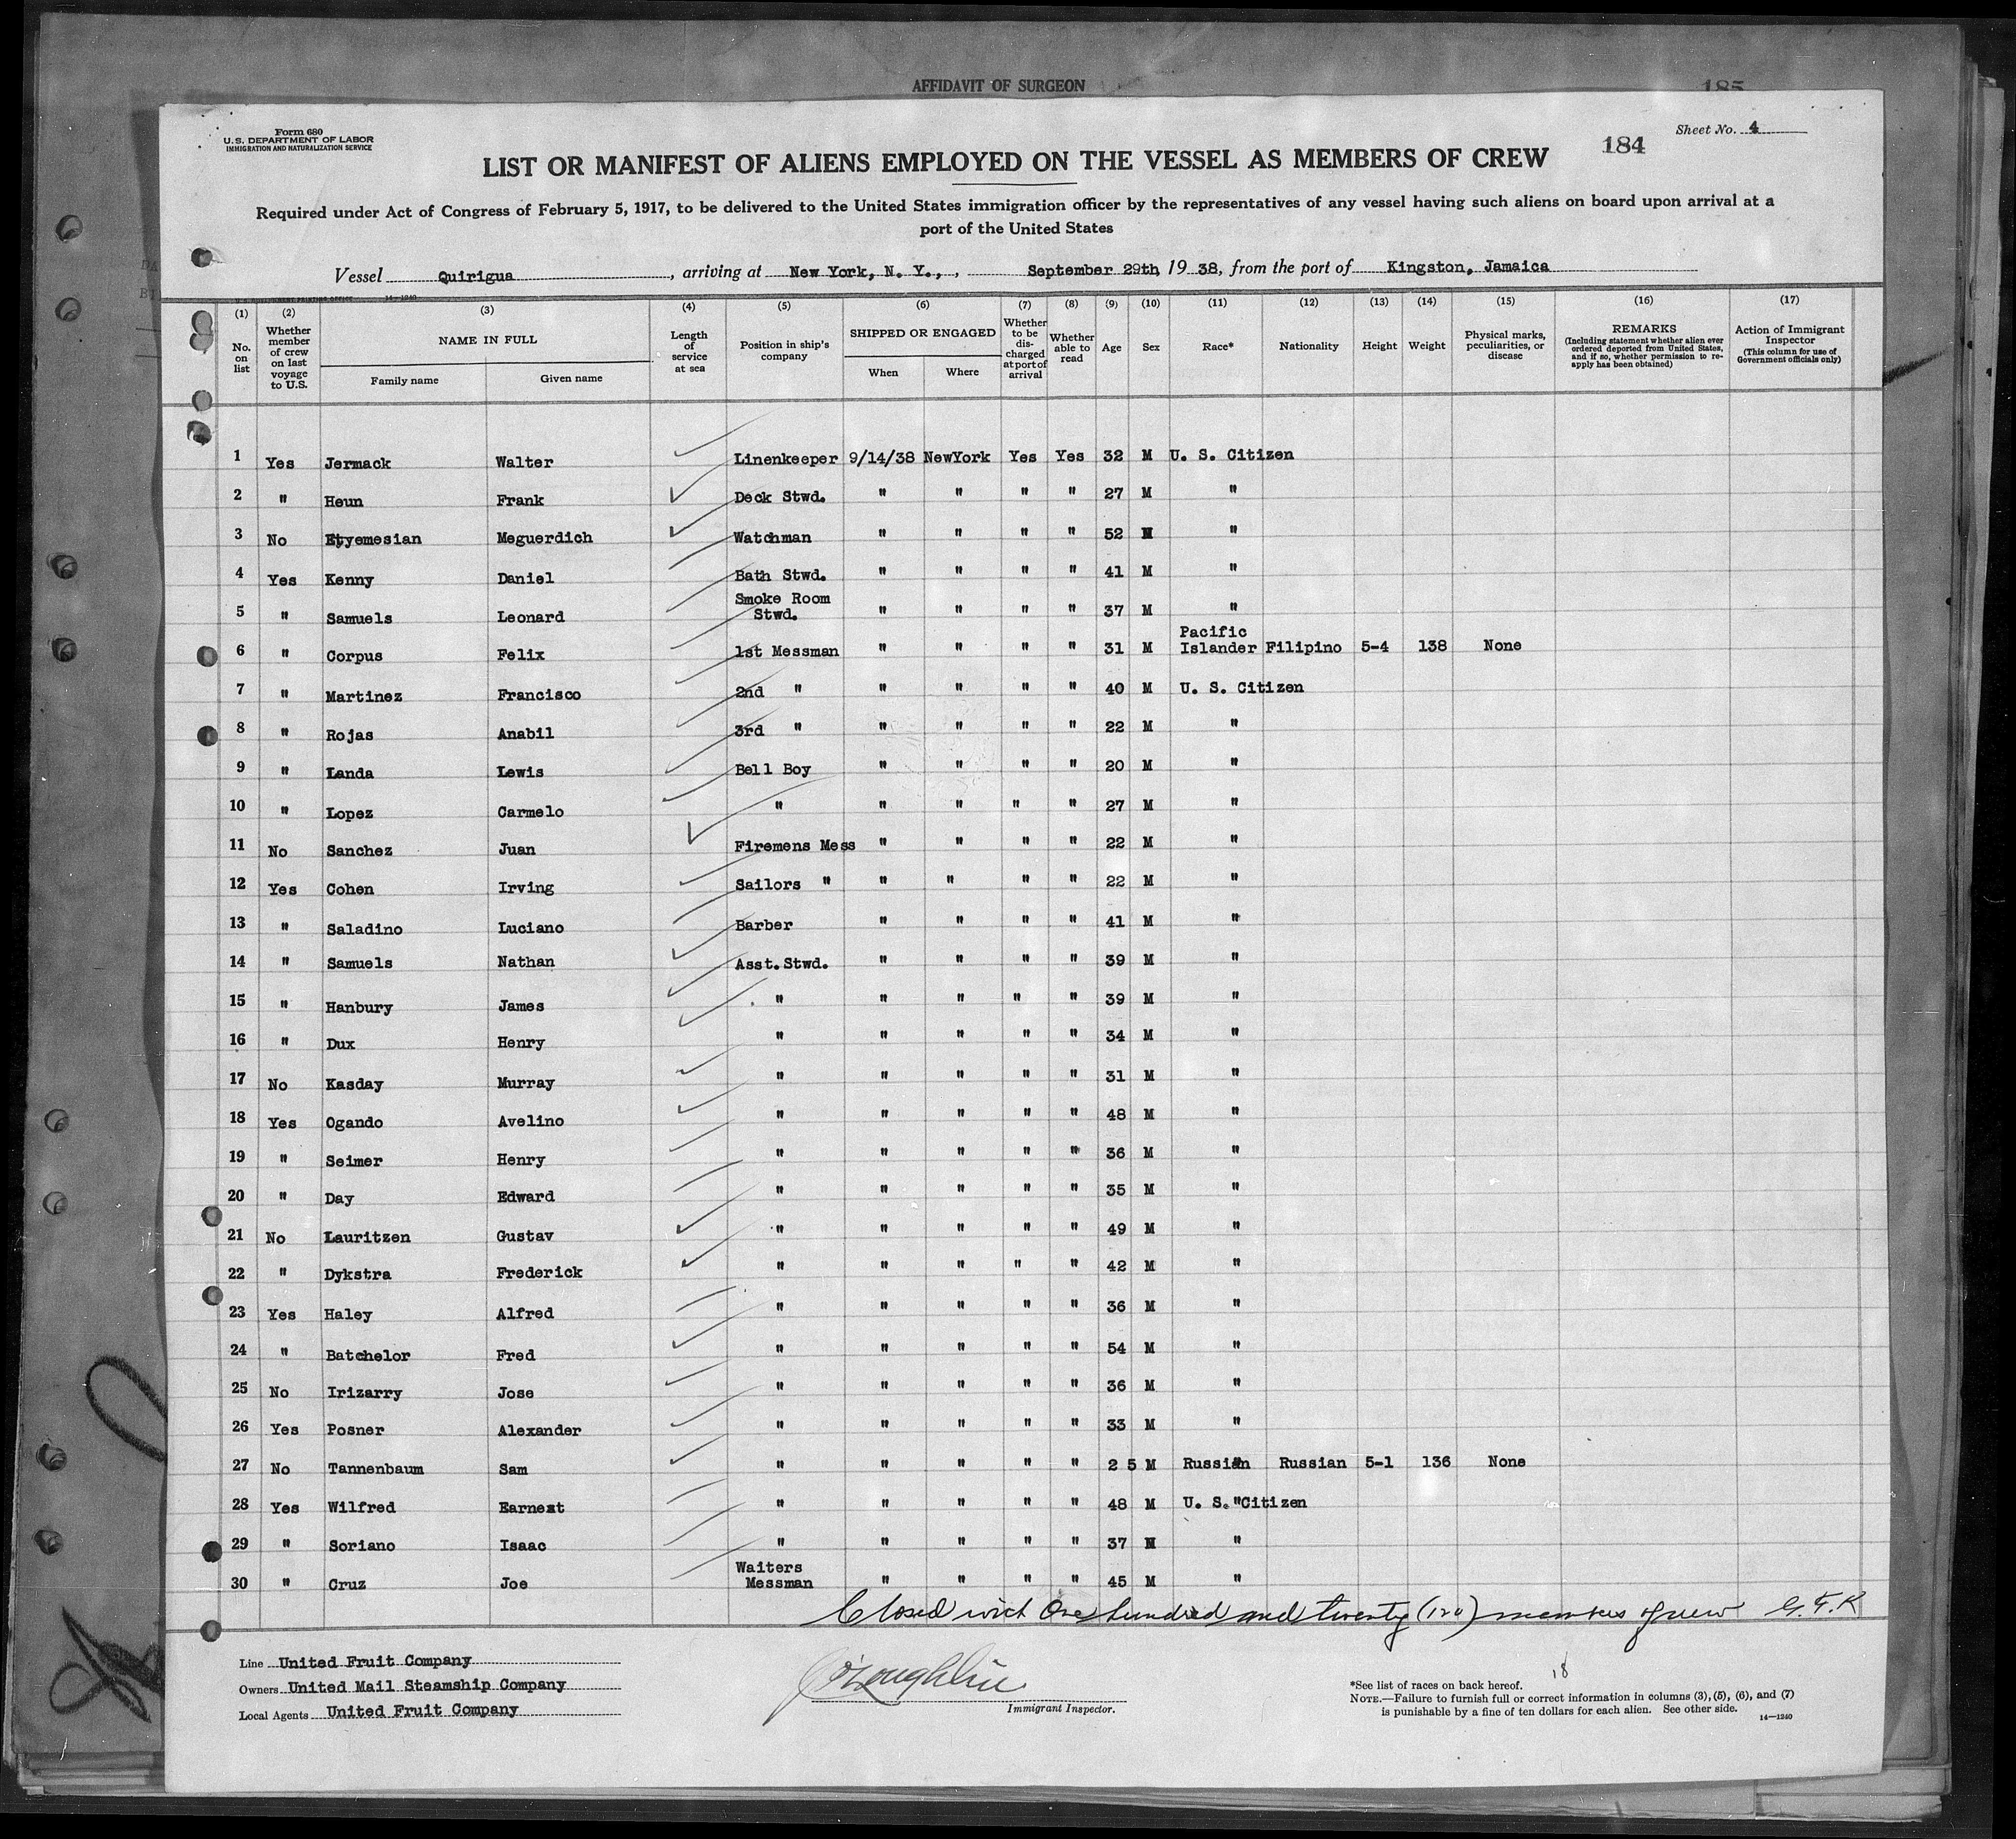 AFFIDAVIT OF SURGEON
185
Form 680
U.S. DEPARTMENT OF LABOR
IMMIGRATION AND NATURALIZATION SERVICE
Sheet No. 4
184
LIST OR MANIFEST OF ALIENS EMPLOYED ON THE VESSEL AS MEMBERS OF CREW
Required under Act of Congress of February 5, 1917, to be delivered to the United States immigration officer by the representatives of any vessel having such aliens on board upon arrival at a
port of the United States
Vessel Quirigua, arriving at New York, N. Y., , September 29th, 19 38, from the port of Kingston, Jamaica
14—1240
(1) No. on list
(2) Whether member of crew on last voyage to U.S.
(3) NAME IN FULL
Family name
Given name
(4) Length of service at sea
(5) Position in ship's company
(6) SHIPPED OR ENGAGED
When
Where
(7) Whether to be discharged at port of arrival
(8) Whether able to read
(9) Age
(10) Sex
(11) Race*
(12) Nationality
(13) Height
(14) Weight
(15) Physical marks, peculiarities, or disease
(16) REMARKS (Including statement whether alien ever ordered deported from United States, and if so, whether permission to re-apply has been obtained)
(17) Action of Immigrant Inspector (This column for use of Government officials only)
1 Yes Jermack Walter Linenkeeper 9/14/38 NewYork Yes Yes 32 M U. S. Citizen
2 " Heun Frank Deck Stwd. " " " " 27 M "
3 No Etyemesian Meguerdich Watchman " " " " 52 M "
4 Yes Kenny Daniel Bath Stwd. " " " " 41 M "
5 " Samuels Leonard Smoke Room Stwd. " " " " 37 M "
6 " Corpus Felix 1st Messman " " " " 31 M Pacific Islander Filipino 5-4 138 None
7 " Martinez Francisco 2nd " " " " " 40 M U. S. Citizen
8 " Rojas Anabil 3rd " " " " " 22 M "
9 " Landa Lewis Bell Boy " " " " 20 M "
10 " Lopez Carmelo " " " " " 27 M "
11 No Sanchez Juan Firemens Mess " " " " 22 M "
12 Yes Cohen Irving Sailors " " " " " 22 M "
13 " Saladino Luciano Barber " " " " 41 M "
14 " Samuels Nathan Asst. Stwd. " " " " 39 M "
15 " Hanbury James " " " " " 39 M "
16 " Dux Henry " " " " " 34 M "
17 No Kasday Murray " " " " " 31 M "
18 Yes Ogando Avelino " " " " " 48 M "
19 " Seimer Henry " " " " " 36 M "
20 " Day Edward " " " " " 35 M "
21 No Lauritzen Gustav " " " " " 49 M "
22 " Dykstra Frederick " " " " " 42 M "
23 Yes Haley Alfred " " " " " 36 M "
24 " Batchelor Fred " " " " " 54 M "
25 No Irizarry Jose " " " " " 36 M "
26 Yes Posner Alexander " " " " " 33 M "
27 No Tannenbaum Sam " " " " " 2 5 M Russian Russian 5-1 136 None
28 Yes Wilfred Earnest " " " " " 48 M U. S. "Citizen
29 " Soriano Isaac " " " " " 37 M "
30 " Cruz Joe Waiters Messman " " " " 45 M "
Closed with One hundred and twenty (120) members of crew G. F. K
Line United Fruit Company
Owners United Mail Steamship Company
Local Agents United Fruit Company
O'Loughlin
Immigrant Inspector.
18
*See list of races on back hereof.
NOTE.—Failure to furnish full or correct information in columns (3), (5), (6), and (7)
is punishable by a fine of ten dollars for each alien. See other side.
14—1240